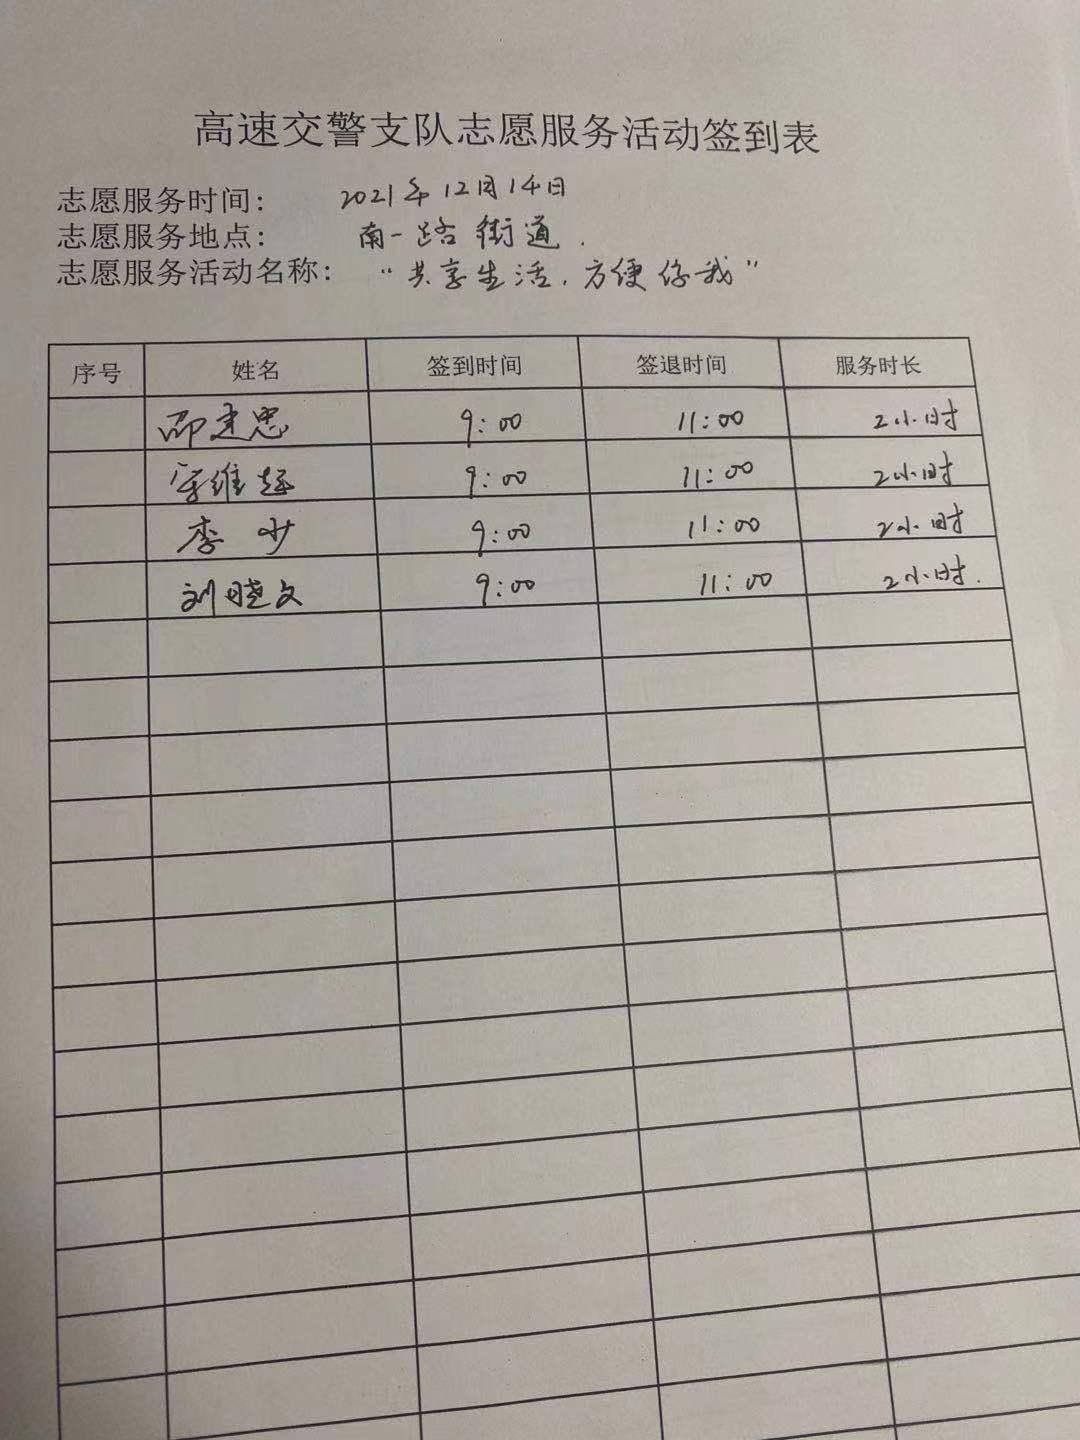 高速交警支队志愿服务活动签到表
志愿服务时间： 2021年12月14日
志愿服务地点： 南一路街道.
志愿服务活动名称： “共享生活，方便你我”
序号 姓名 签到时间 签退时间 服务时长
邵建忠 9:00 11:00 2小时
维 9:00 11:00 2小时
李少 9:00 11:00 2小时
刘晓文 9:00 11:00 2小时.